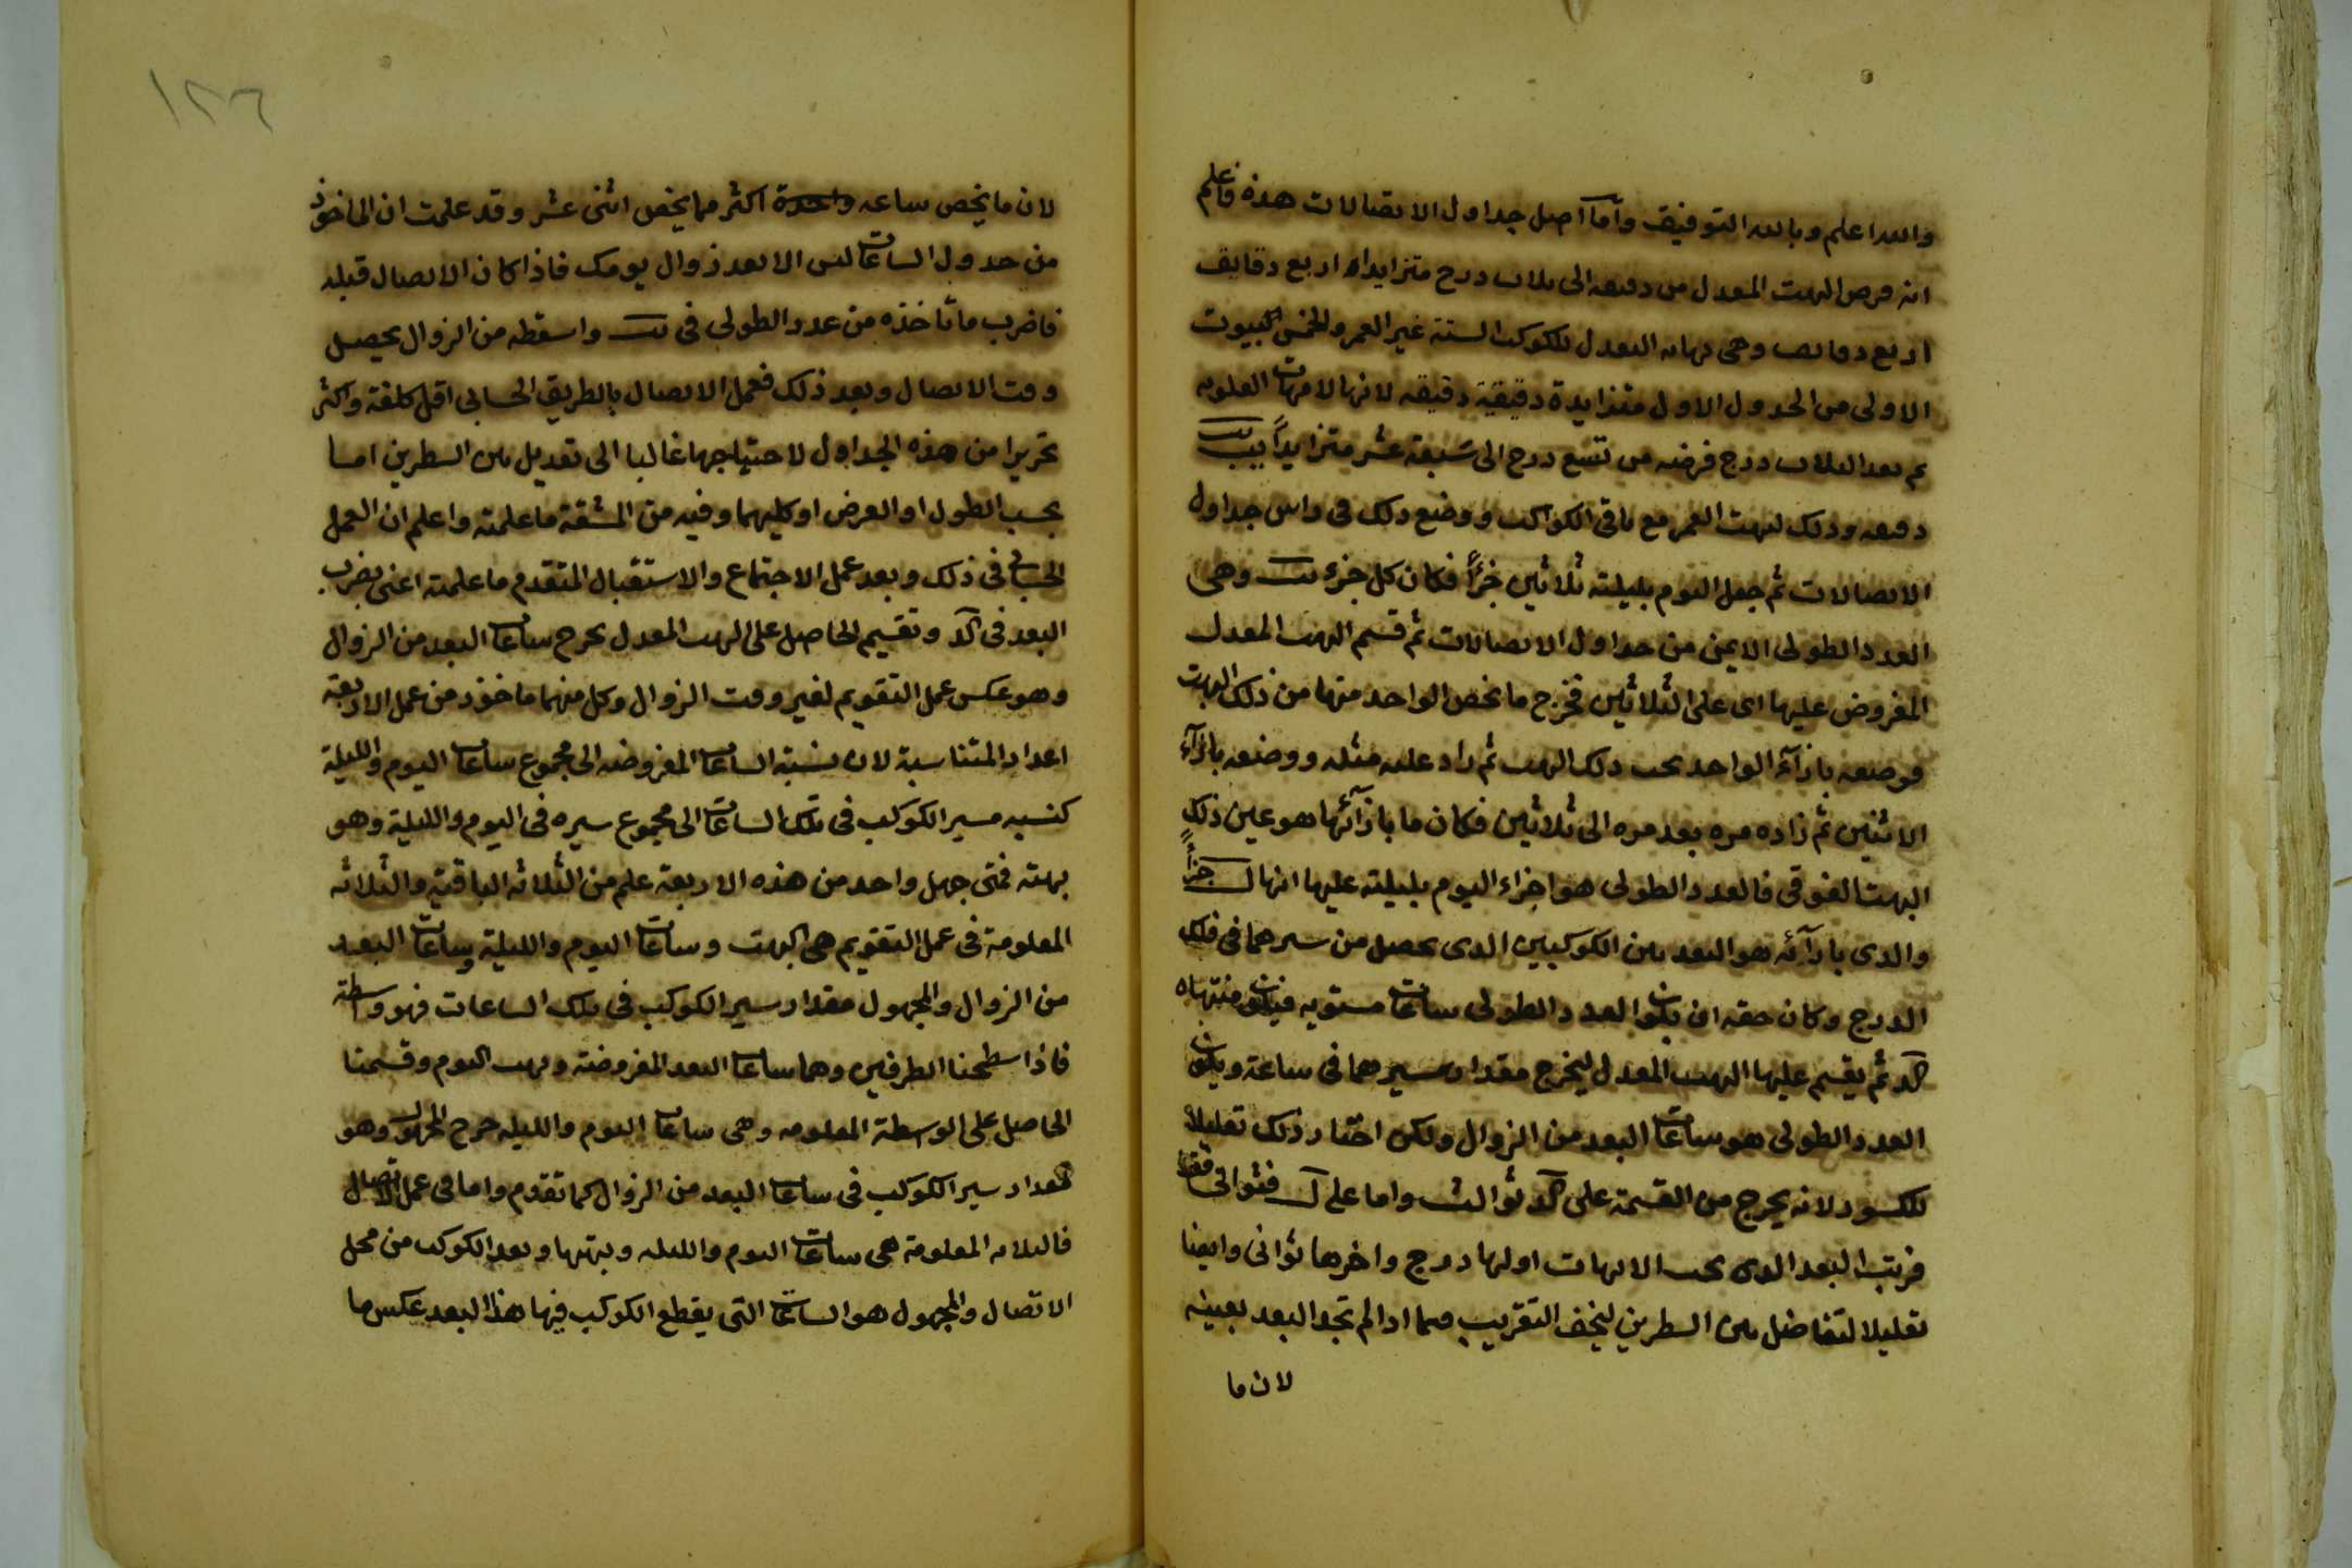 والله اعلم وبالله التوفيق وأما اصل جداول الاتصالات هذه فاعلم
انه فرض البهت المعدل من دقيقة الى ثلاث درج متزايدا اربع دقايق
اربع دقايق وهي نهاية البعدل للكوكب الستة غير القمر والخمس البيوت
الاولى من الجدول الاول متزايدة دقيقة دقيقه لانها لابهات العلويه
ثم بعد الثلاث درج فرضه من تسع درج الى سبعة عشر متزايدا بيب
دقيقه وذلك لبهت القمر مع باقى الكواكب ووضع ذلك فى راس جداول
الاتصالات ثم جعل اليوم بليلته ثلاثين جزأ فكان كل جزء وهى
العدد الطولى الايمن من جداول الاتصالات ثم قسم البهت المعدل
المفروض عليها اى على الثلاثين فخرج ما يخص الواحد منها من ذلك البهت
فوضعه بازآء الواحد تحت ذلك البهت ثم زاد عليه مثله ووضعه بازآء
الاثنين ثم زاده مره بعد مره الى ثلاثين فكان ما بازآئها هو عين ذلك
البهت الفوقى فالعدد الطولى هو اجزاء اليوم بليلته عليها انها ل جزأ
والذى بازآئه هو البعد بين الكوكبين الذى يحصل من سيرهما فى فلك
الدرج وكان حقه ان يكون العدد الطولى ساعات مستويه فيكون منتهاه
كد ثم يقسم عليها البهت المعدل ليخرج مقدار مسيرهما فى ساعة ويكون
العدد الطولى هو ساعات البعد من الزوال ولكن اختار ذلك تقليلا
للكسور لانه يخرج من القسمة على كد ثوالث واما على ل فثوانى فقط
فرتب البعد الذى تحت الابهات اولها درج واخرها ثوانى وايضا
تقليلا لتفاضل بين السطرين ليخف التقريب فيما اذا لم تجد البعد بعينه
لان ما
١٢٦
لان ما يخص ساعه واحدة اكثر مما يخص اثنى عشر وقد علمت ان الماخوذ
من جدول الساعات ليس الا بعد زوال يومك فاذا كان الاتصال قبله
فاضرب ما تاخذه من عدد الطولى فى واسقطه من الزوال يحصل
وقت الاتصال وبعد ذلك فعمل الاتصال بالطريق الحسابى اقل كلفة واكثر
تحريرا من هذه الجداول لاحتياجها غالبا الى تعديل بين السطرين اما
بحسب الطول او العرض او كليهما وفيه من المشقة ما علمته واعلم ان العمل
الحسابى فى ذلك وبعد عمل الاجتماع والاستقبال المتقدم ما علمته اعنى بضرب
البعد فى كد وتقسيم الحاصل على البهت المعدل يخرج ساعات البعد من الزوال
وهو عكس عمل التقويم لغير وقت الزوال وكل منهما ماخوذ من عمل الاربعة
اعداد المتناسبة لان نسبة الساعات المفروضه الى مجموع ساعات اليوم والليلة
كنسبه مسير الكوكب فى تلك الساعات الى مجموع سيره فى اليوم والليلة وهو
بهته فمتى جهل واحد من هذه الاربعة علم من الثلاثه الباقية والثلاثه
المعلومة فى عمل التقويم هى البهت وساعات اليوم والليلة وساعات البعد
من الزوال والمجهول مقدار سير الكوكب فى تلك الساعات فهو واسطة
فاذا سطحنا الطرفين وهما ساعات البعد المفروضة وبهت اليوم وقسمنا
الحاصل على الوسطة المعلومه وهى ساعات اليوم والليله خرج المجهول وهو
مقدار سير الكوكب فى ساعات البعد من الزوال كما تقدم واما فى عمل الاتصال
فالثلاثه المعلومة هى ساعات اليوم والليله وبهتها وبعد الكوكب من محل
الاتصال والمجهول هو الساعات التى يقطع الكوكب فيها هذا البعد عكس ما